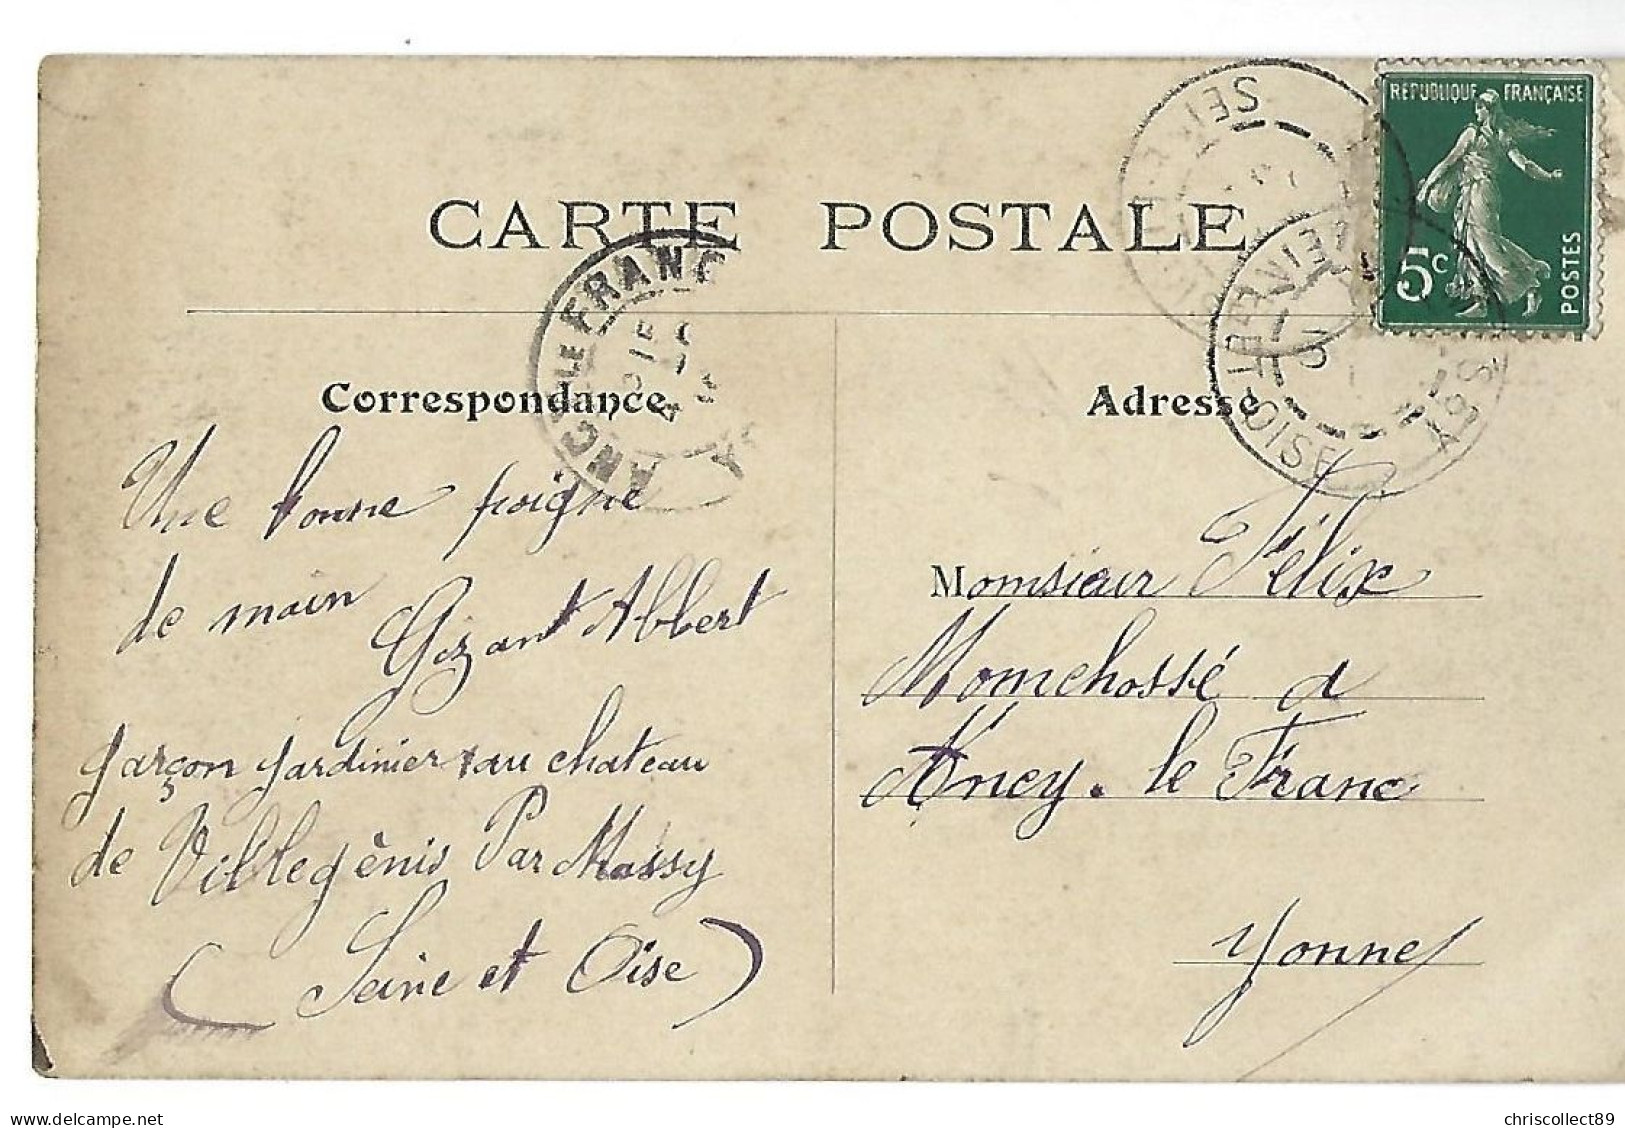 CARTE POSTALE
RÉPUBLIQUE FRANÇAISE
5c
POSTES
ANCY LE FRANC
SEINE-ET-OISE
Correspondance
Une bonne poigne
de main
Gozant Albert
garçon jardinier au chateau
de Villegénis Par Massy
(Seine et Oise)
Adresse
Monsieur Félix
Monchossé a
Ancy-le Franc
Yonne
www.delcampe.net
chriscollect89